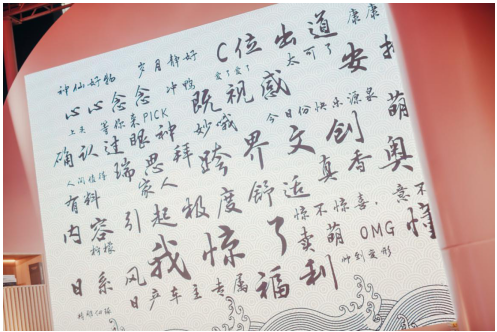 神仙好物 岁月静好 C位出道 康康
心心念念 冲鸭 爱了爱了 太可了 安
上头 等你来PICK 既视感
确认过眼神 妙哉 今日份快乐源泉 萌
人间值得 瑞思拜 跨界文创 奥
有料 家人 真香
内容 引起极度舒适 惊不惊喜,意不
柠檬 我惊了 卖萌 OMG
日系风 福利 帅到变形
日产车主专属